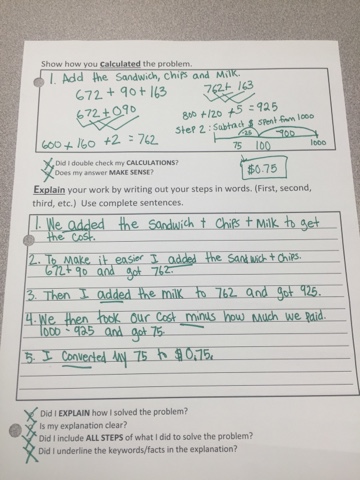 Show how you Calculated the problem.
1. Add the Sandwich, Chips and Milk.
672 + 90 + 163
762 + 163
672 + 090
800 + 120 + 5 = 925
600 + 160 + 2 = 762
Step 2: Subtract $ spent from 1000
25 900
75 100 1000
$0.75
Did I double check my CALCULATIONS?
Does my answer MAKE SENSE?
Explain your work by writing out your steps in words. (First, second,
third, etc.) Use complete sentences.
1. We added the Sandwich + Chips + Milk to get
the Cost.
2. To Make it easier I added the Sandwich + Chips.
672 + 90 and got 762.
3. Then I added the milk to 762 and got 925.
4. We then took our Cost minus how Much we Paid.
1000 - 925 and got 75.
5. I Converted My 75 to $0.75.
Did I EXPLAIN how I solved the problem?
Is my explanation clear?
Did I include ALL STEPS of what I did to solve the problem?
Did I underline the keywords/facts in the explanation?